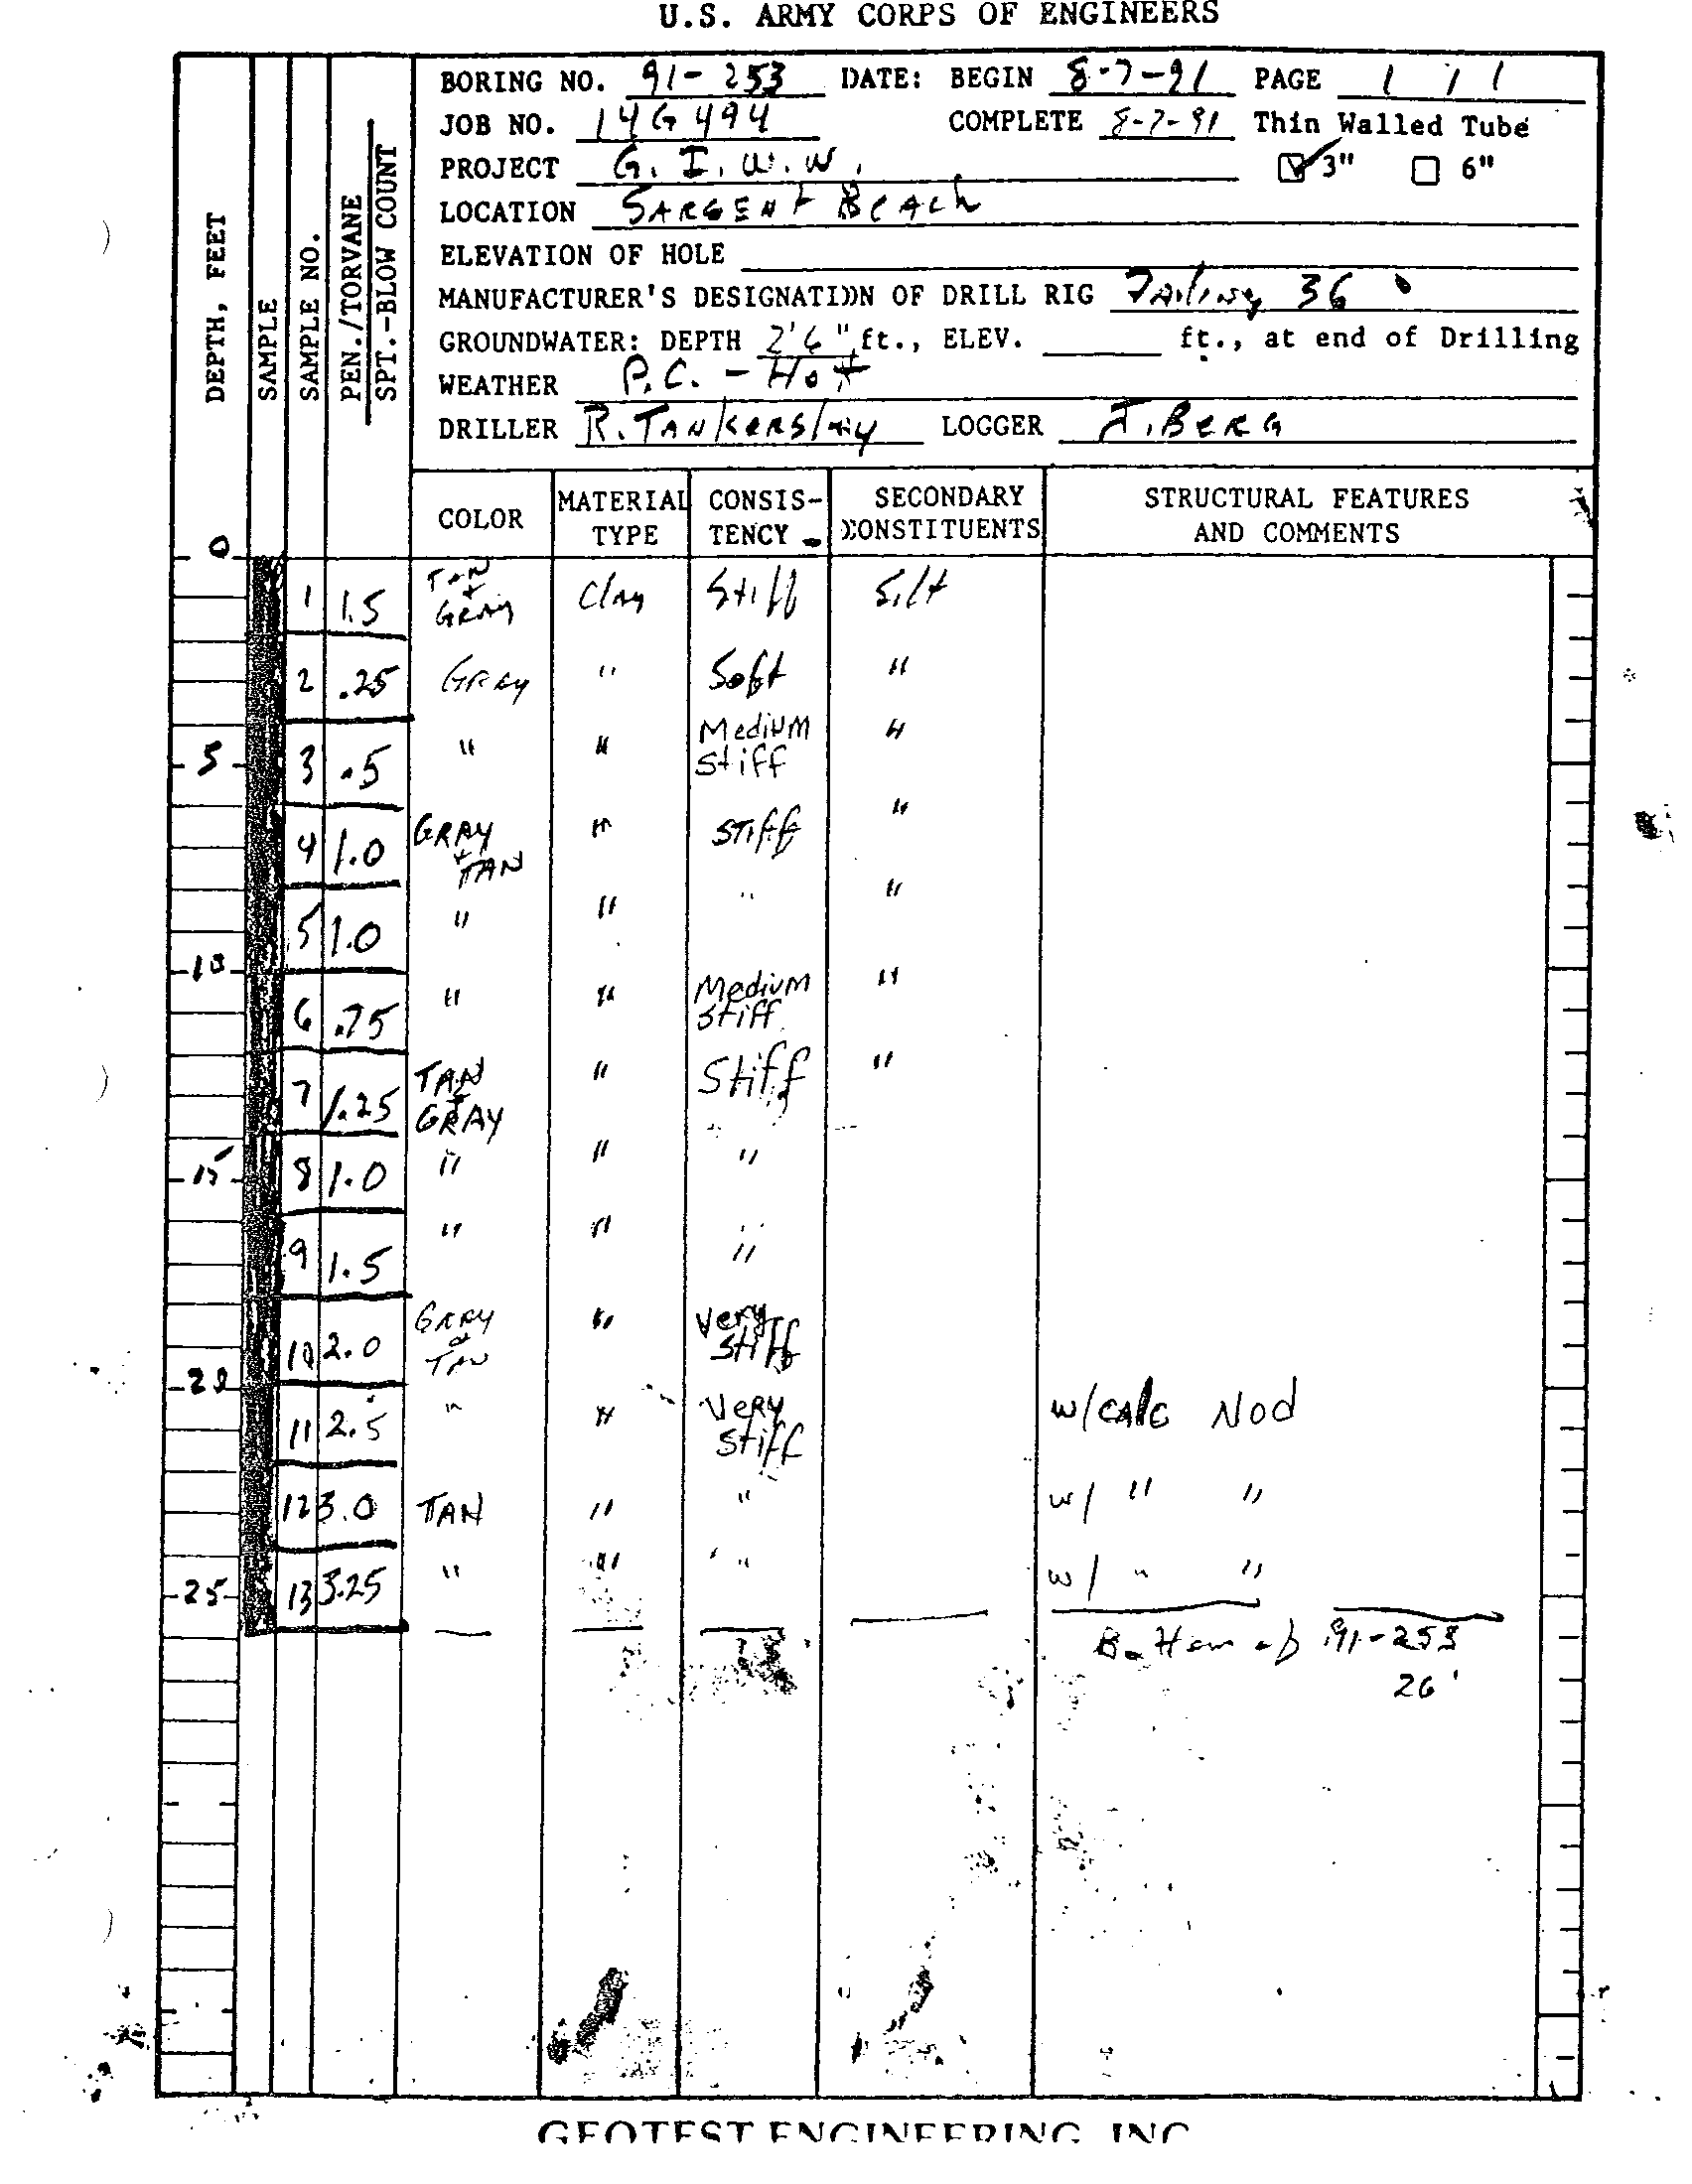 U.S. ARMY CORPS OF ENGINEERS
BORING NO. 91-253 DATE: BEGIN 8-7-91 PAGE 1 / 1
JOB NO. 14G494 COMPLETE 8-7-91 Thin Walled Tube
PROJECT G.I.W.W. ☑ 3" ☐ 6"
LOCATION SARGENT BEACH
ELEVATION OF HOLE
MANUFACTURER'S DESIGNATION OF DRILL RIG Failing 36
GROUNDWATER: DEPTH 2'6" ft., ELEV. ft., at end of Drilling
WEATHER P.C. - Hot
DRILLER R. TANKERSLEY LOGGER J. BERG
DEPTH, FEET
SAMPLE
SAMPLE NO.
PEN./TORVANE
SPT.-BLOW COUNT
COLOR MATERIAL TYPE CONSIS-TENCY SECONDARY CONSTITUENTS STRUCTURAL FEATURES AND COMMENTS
0
1 1.5 TAN + GRAY Clay Stiff Silt
2 .25 GRAY " Soft "
5 3 .5 " " Medium Stiff "
4 1.0 GRAY + TAN " STiff "
5 1.0 " " " "
10
6 .75 " " Medium Stiff "
7 1.25 TAN + GRAY " Stiff "
15 8 1.0 " " "
9 1.5 " " "
10 2.0 GRAY & TAN " Very Stiff
20
11 2.5 " " Very Stiff w/calc Nod
12 3.0 TAN " " w/ " "
25 13 3.25 " " " w/ " "
Bottom of 91-253
26'
GEOTEST ENGINEERING, INC